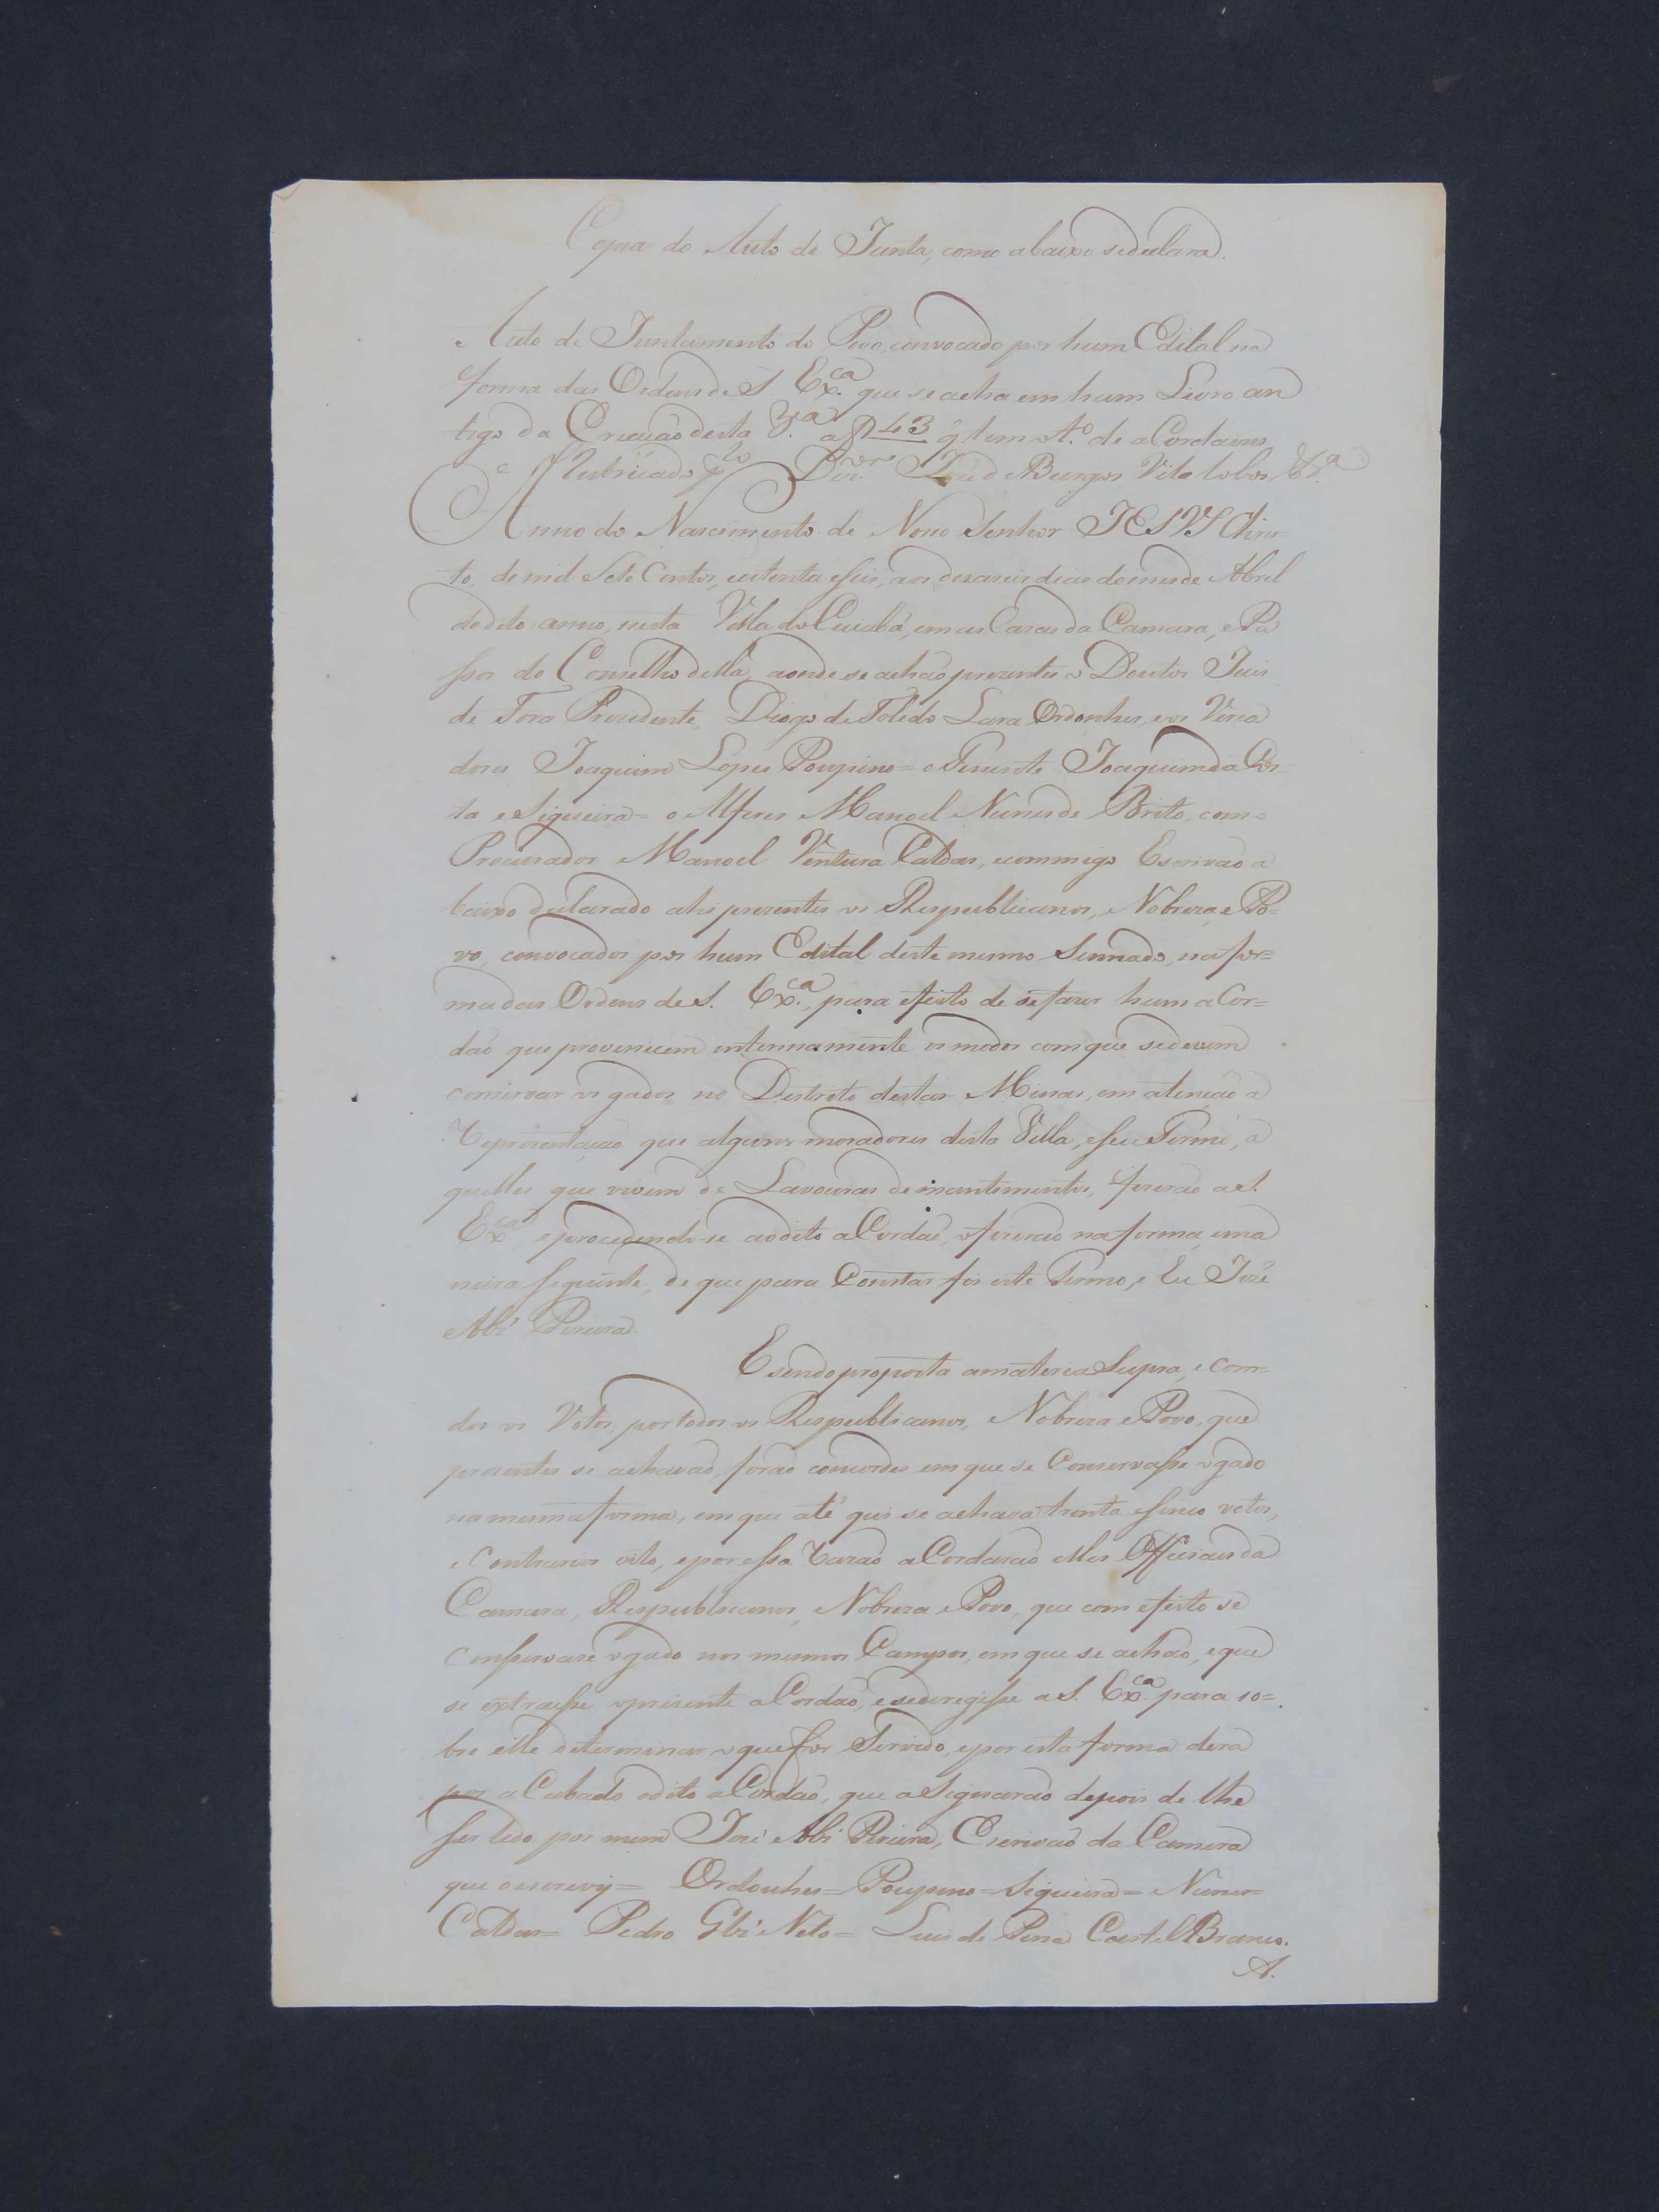 Copia do Auto de Junta, como abaixo sedeclara.
Auto de Juntamento do Povo, convocado por hum Edital na
forma das Ordens de S Ex.ca que se acha em hum Livro an
tigo da Creaçaõ desta V.a a f 43 q̃ tem o t.o de aCordaons
e Rubricado p.lo Dor. José de Burgos Vila lobos &.a
Anno do Nascimento de Nosso Senhor JESVS Chris-
to, de mil Sete Centos, eoitenta eSeis, aos dezaseis dias domes de Abril
dodito anno, nesta Villa do Cuiabá, em as Cazas da Camara, e Pa
ssos do Conselho della, aonde se achaõ prezentes o Doutor Juis
de Fora Prezidente, Diogo de Toledo Lara Ordonhes, e os Verea
dores Joaquim Lopes Poupino= o Tenente Joaquim da Cos-
ta e Siqueira= o Alferes Manoel Nunes de Brito, com o
Procurador Manoel Ventura Caldas, ecommigo Escrivaõ a
baixo declarado ahi prezentes os Respublicanos, Nobreza, e Po=
vo, convocados por hum Edital deste mesmo Sennado, na for=
ma das Ordens de S. Ex.ca, para efeito de se fazer hum aCor=
daõ que provenicem interinamente os modos com que sedevem
conservar os gados no Destrito destas Minas, em atençaõ a
Reprezentaçaõ que alguns moradores desta Villa, eSeu Termo, a
quelles que vivem de Lavouras de mantimentos, fizeraõ a S.
Ex.ca, e procedendo-se aodito aCordaõ, o fizeraõ na forma, ema
neira Seguinte, de que para Constar fis este Termo, e Eu José
Abi Pereira.
E sendo proposta amateria Supra, e com-
dos os Votos, por todos os Respublicanos, Nobreza e Povo, que
prezentes se achavaõ, foraõ concordes em que se Conservasse ogado
na mesma forma, em que até qui se achava trinta eSinco votos,
e Contrarios oito, epor essa Razaõ aCordaraõ elles Officiaes da
Camara, Respublicanos, Nobreza e Povo, que com efeito se
conservase ogado nos mesmos Campos, em que se achaõ, e que
se extraesse oprizente aCordaõ, e sederegisse a S. Ex.ca para so=
bre elle determinar oque for Servido, epor esta forma dera
por aCabado odito aCordaõ, que aSignaraõ depois de lhe
ser lido por mim José Abi Pereira, Escrivaõ da Camera
que o escrevy= Ordonhes= Poupino= Siqueira= Nunes=
Caldas= Pedro Glz' Neto= Luis de Pina Castel Branco.
A.